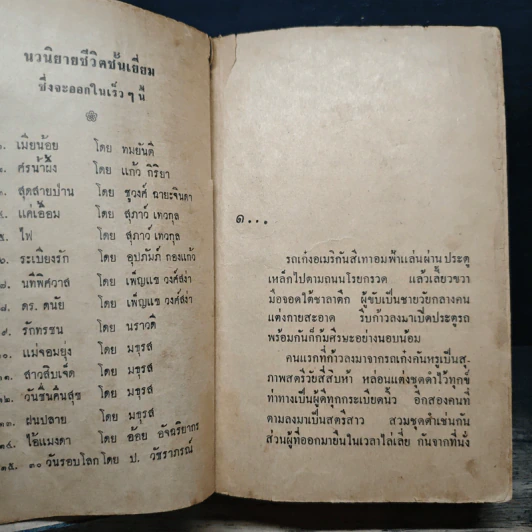 นวนิยายชีวิตชั้นเยี่ยม
ซึ่งจะออกในเร็ว ๆ นี้
เมียน้อย โดย ทมยันตี
ศรน้ำผึ้ง โดย แก้ว กิริยา
สุดสายป่าน โดย ชูวงศ์ ฉายะจินดา
แค่เอื้อม โดย สุภาว์ เทวกุล
๕. ไฟ โดย สุภาว์ เทวกุล
๖. ระเบียงรัก โดย อุปภัมภ์ กองแก้ว
๗. นทีพิศวาส โดย เพ็ญแข วงศ์สง่า
๘. ดร. ดนัย โดย เพ็ญแข วงศ์สง่า
๙. รักทรชน โดย นราวดี
๑๐. แม่จอมยุ่ง โดย มธุรส
๑๑. สาวสิบเจ็ด โดย มธุรส
๑๒. วันชื่นคืนสุข โดย มธุรส
๑๓. ฝนปลาย โดย มธุรส
๑๔. ไอ้แมงดา โดย อ้อย อัจฉริยากร
๑๕. ๓๐ วันรอบโลก โดย ป. วัชราภรณ์
๑...
รถเก๋งอเมริกันสีเทาอมฟ้าแล่นผ่านประตู
เหล็กไปตามถนนโรยกรวด แล้วเลี้ยวขวา
มือจอดใต้ชาลาตึก ผู้ขับเป็นชายวัยกลางคน
แต่งกายสะอาด รีบก้าวลงมาเปิดประตูรถ
พร้อมกันก็ก้มศีรษะอย่างนอบน้อม
คนแรกที่ก้าวลงมาจากรถเก๋งคันหรูเป็นสุ-
ภาพสตรีวัยสี่สิบห้า หล่อนแต่งชุดดำไว้ทุกข์
ท่าทางเป็นผู้ดีทุกกระเบียดนิ้ว อีกสองคนที่
ตามลงมาเป็นสตรีสาว สวมชุดดำเช่นกัน
ส่วนผู้ที่ออกมายืนในเวลาไล่เลี่ย กันจากที่นั่ง